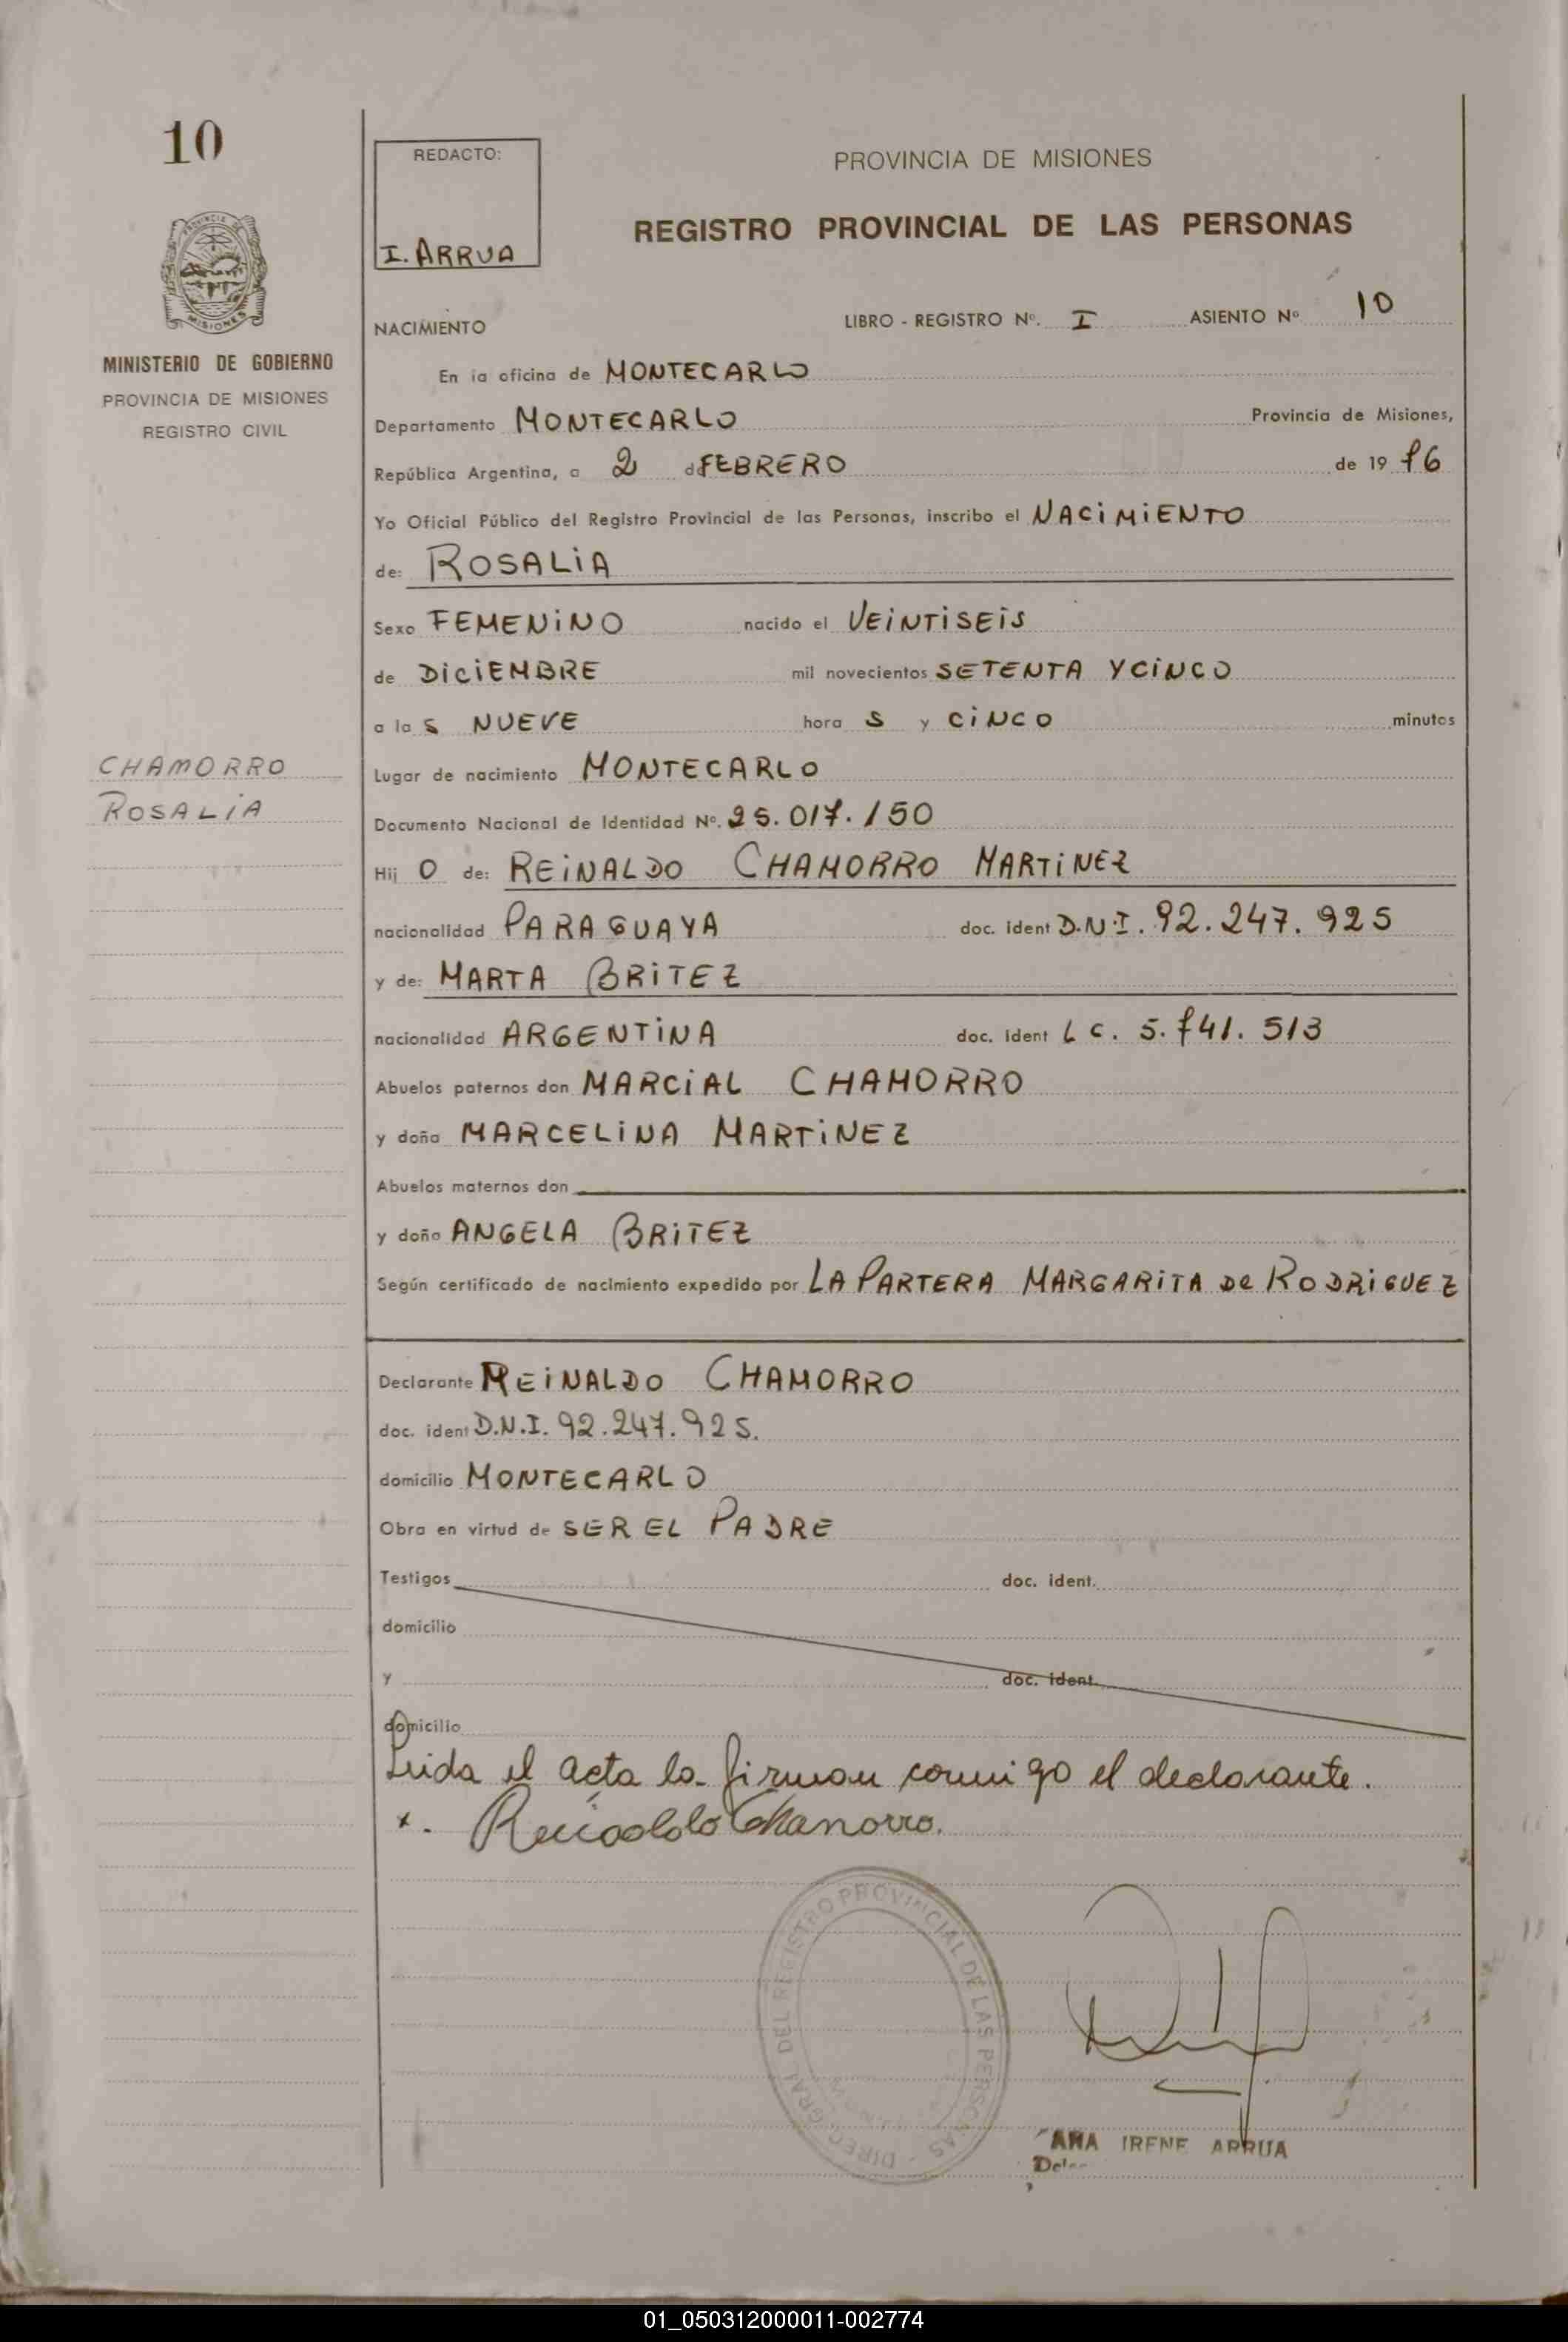 10
REDACTO:
I. ARRUA
PROVINCIA DE MISIONES
REGISTRO PROVINCIAL DE LAS PERSONAS
MINISTERIO DE GOBIERNO
PROVINCIA DE MISIONES
REGISTRO CIVIL
NACIMIENTO LIBRO - REGISTRO Nº. I ASIENTO Nº 10
En la oficina de MONTECARLO
Departamento MONTECARLO Provincia de Misiones,
República Argentina, a 2 d FEBRERO de 19 76
Yo Oficial Público del Registro Provincial de las Personas, inscribo el NACIMIENTO
de: ROSALIA
Sexo FEMENINO nacido el VEINTISEIS
de DICIEMBRE mil novecientos SETENTA Y CINCO
a la S NUEVE hora S y CINCO minutos
CHAMORRO
ROSALIA
Lugar de nacimiento MONTECARLO
Documento Nacional de Identidad Nº. 25.017.150
Hij O de: REINALDO CHAMORRO MARTINEZ
nacionalidad PARAGUAYA doc. ident D.N.I. 92.247.925
y de: MARTA BRITEZ
nacionalidad ARGENTINA doc. ident L C. 5.741.513
Abuelos paternos don MARCIAL CHAMORRO
y doña MARCELINA MARTINEZ
Abuelos maternos don
y doña ANGELA BRITEZ
Según certificado de nacimiento expedido por LA PARTERA MARGARITA DE RODRIGUEZ
Declarante REINALDO CHAMORRO
doc. ident D.N.I. 92.247.925.
domicilio MONTECARLO
Obra en virtud de SER EL PADRE
Testigos doc. ident.
domicilio
y doc. ident.
domicilio
Leida el acta la firman conmigo el declarante.
x. Reinaldo Chamorro.
DIREC. GRAL. DEL REGISTRO PROVINCIAL DE LAS PERSONAS
ANA IRENE ARRUA
01_050312000011-002774